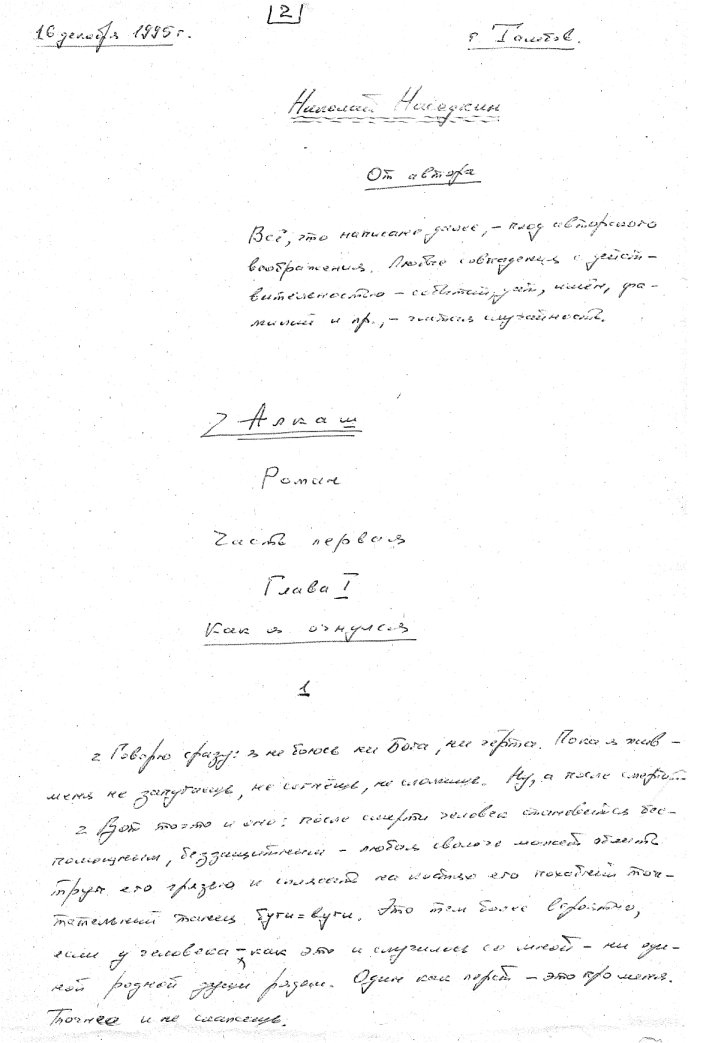 2
16 декабря 1995 г.
г. Тамбов.
Николай Наседкин
От автора
Всё, что написано далее, – плод авторского
воображения. Любые совпадения с дейст-
вительностью – событий, дат, имён, фа-
милий и пр., – чистая случайность.
Алкаш
Роман
Часть первая
Глава I
Как я очнулся
1
Говорю сразу: я не боюсь ни Бога, ни чёрта. Пока я жив –
меня не запугаешь, не согнёшь, не сломишь. Ну, а после смерти...
Вот то-то и оно: после смерти человек становится бес-
помощным, беззащитным – любая сволочь может облить
труп его грязью и сплясать на костях его похабный
танец буги=вуги. Это тем более вероятно,
если у человека – как это и случилось со мной – ни од-
ной родной души рядом. Один как перст – это про меня.
Точнее и не скажешь.